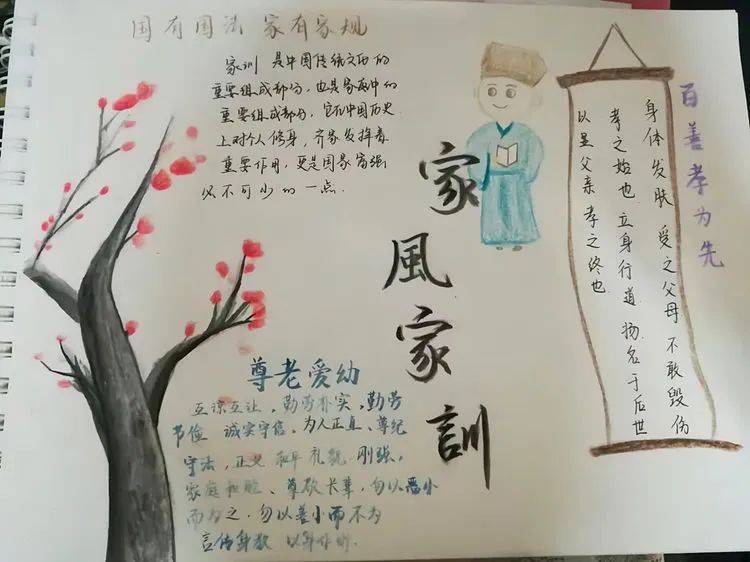 国有国法 家有家规
家训 是中国传统文化的
重要组成部份,也是家庭中的
重要组成部分,它在中国历史
上对个人修身,齐家发挥着
重要作用,更是国家富强
必不可少的一点.
家風家訓
百善孝为先
身体发肤 受之父母 不敢毁伤
孝之始也 立身行道 扬名于后世
以显父亲 孝之终也
尊老爱幼
互谅互让,勤劳朴实,勤劳
节俭 诚实守信、为人正直、尊纪
守法,正义 和平 礼貌 刚强,
家庭和睦、尊敬长辈,勿以恶小
而为之,勿以善小而不为
言传身教 以身作则.